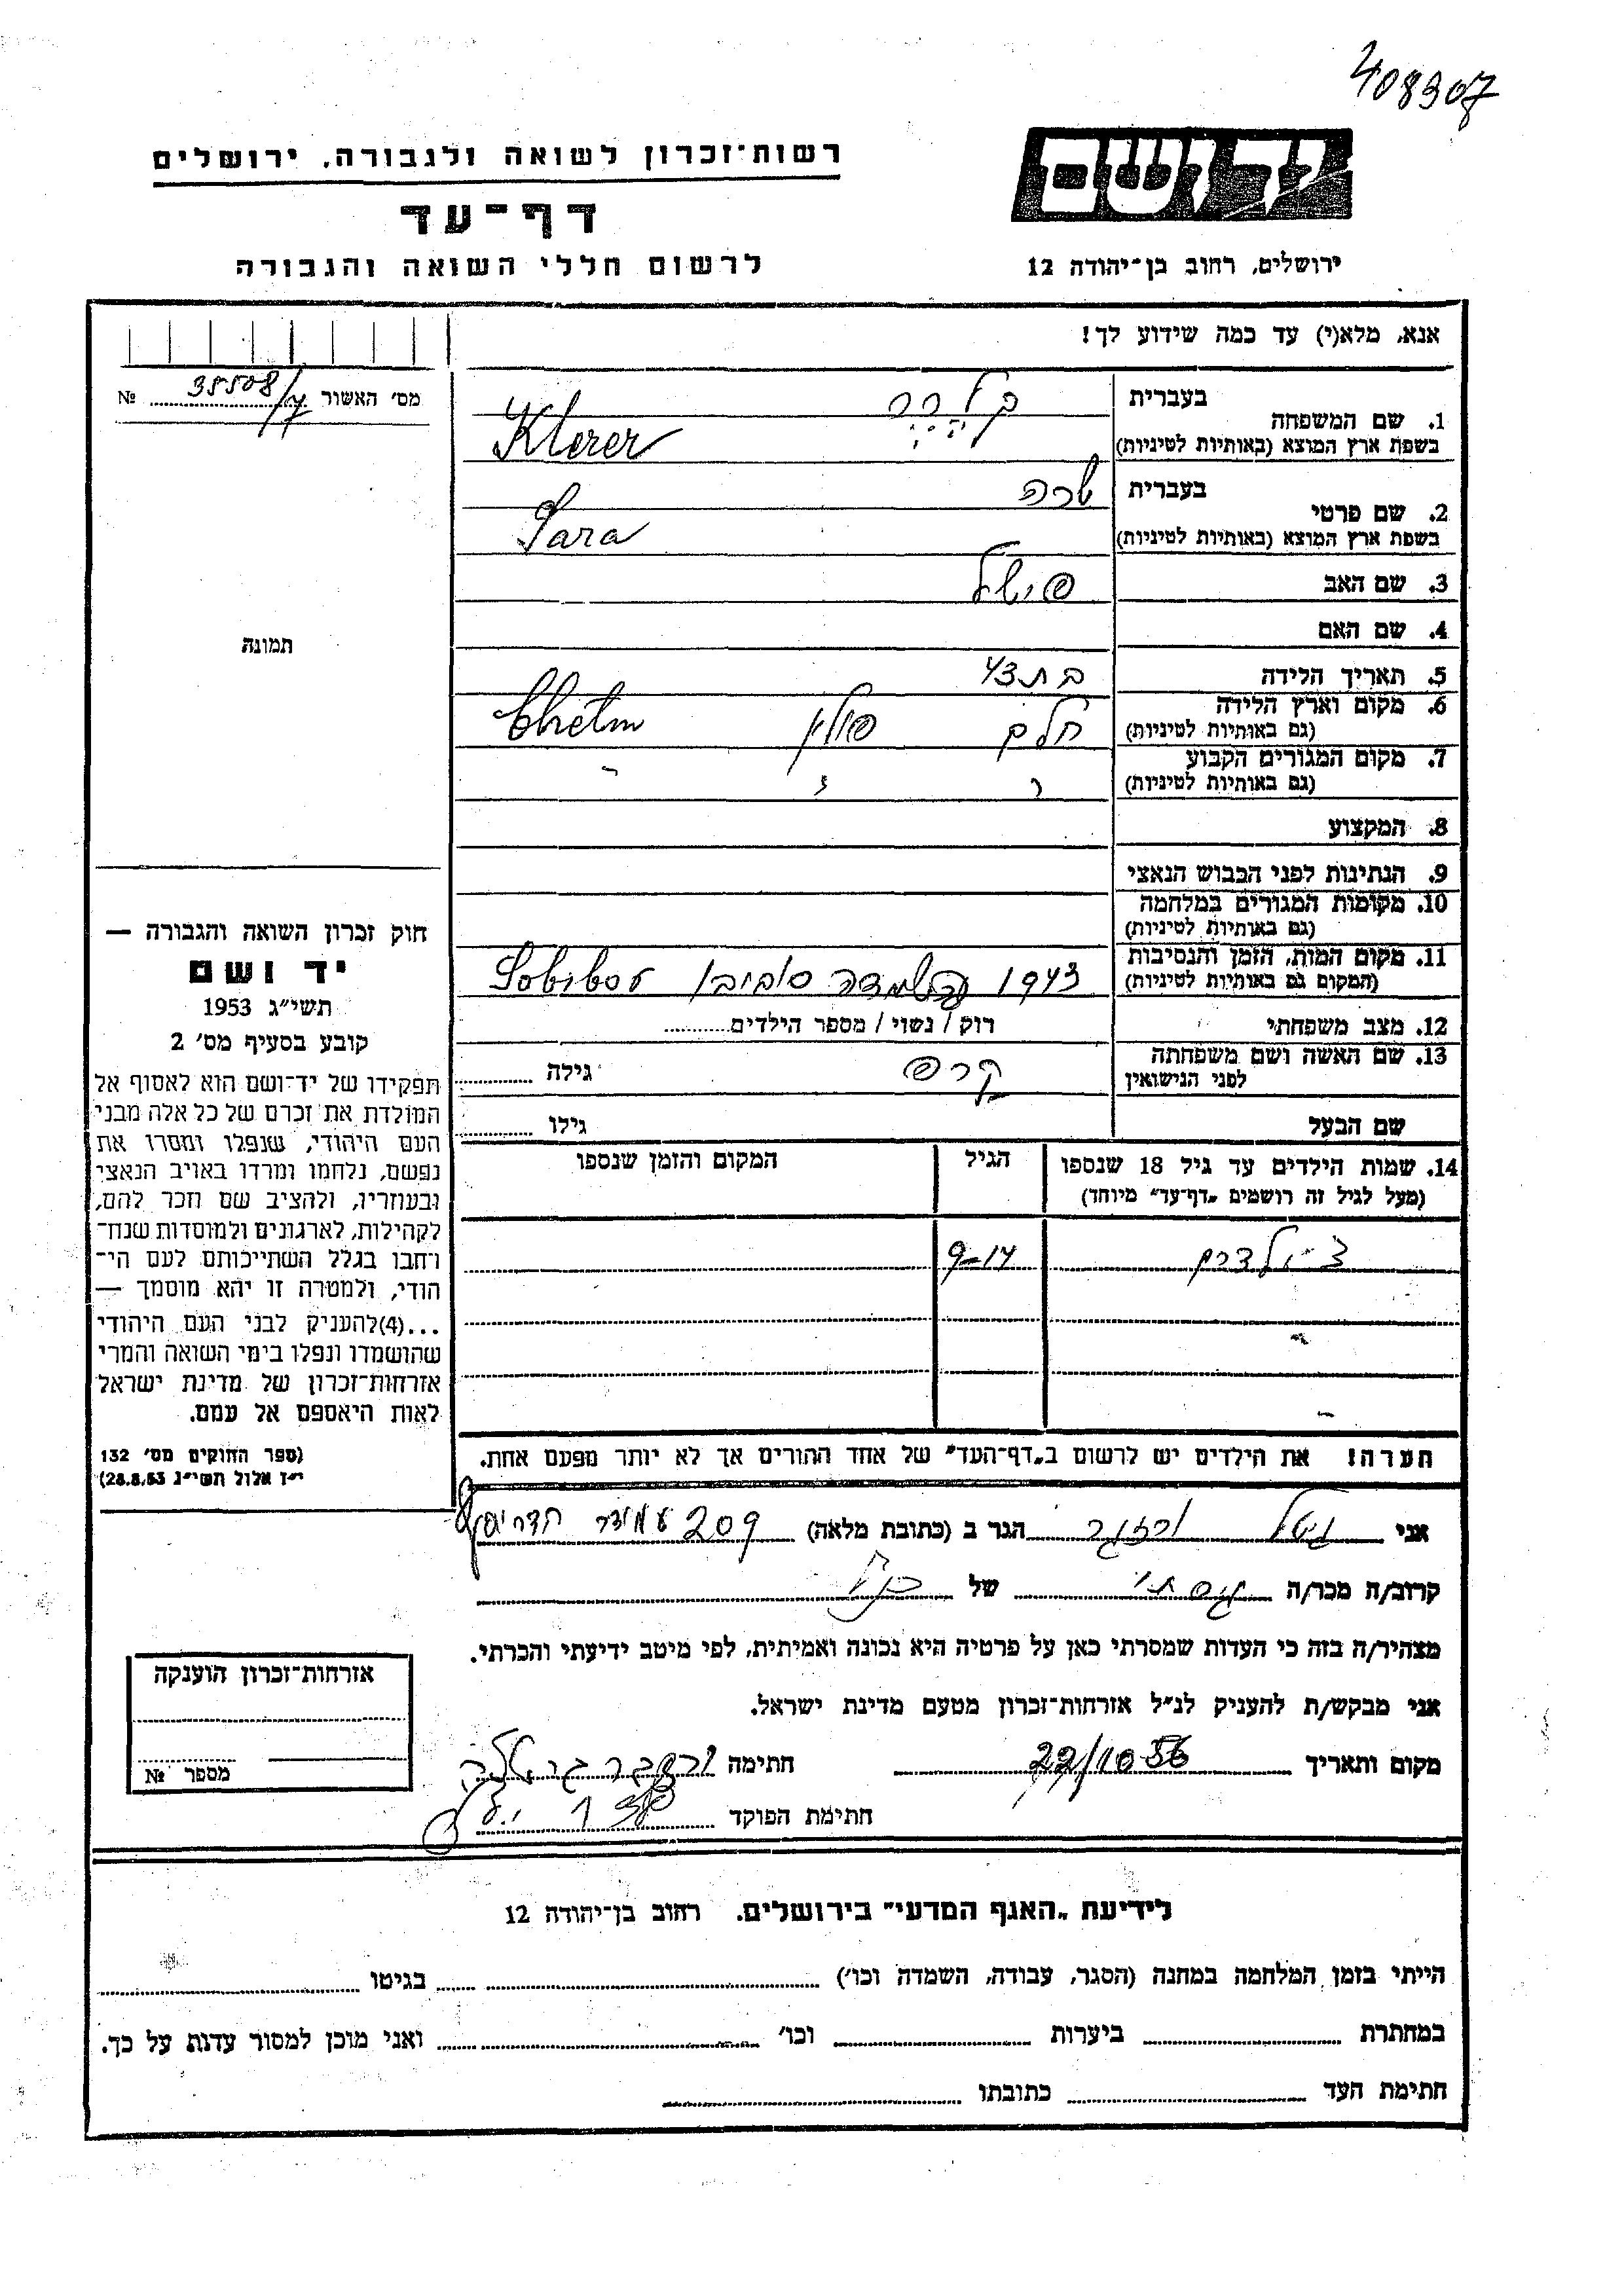 408307
יד ושם
רשות־זכרון לשואה ולגבורה, ירושלים
דף־עד
לרשום חללי השואה והגבורה
ירושלים, רחוב בן־יהודה 12
אנא, מלא(י) עד כמה שידוע לך!
מס' האשור 35508/7 №
תמונה
1. שם המשפחה
בעברית
בשפת ארץ המוצא (באותיות לטיניות) Klerer
2. שם פרטי
בעברית שרה
בשפת ארץ המוצא (באותיות לטיניות) Sara
3. שם האב פישל
4. שם האם
5. תאריך הלידה בת 43
6. מקום וארץ הלידה
(גם באותיות לטיניות) חלם פולין Chelm
7. מקום המגורים הקבוע
(גם באותיות לטיניות)
8. המקצוע
9. הנתינות לפני הכבוש הנאצי
10. מקומות המגורים במלחמה
(גם באותיות לטיניות)
11. מקום המות, הזמן והנסיבות
(המקום גם באותיות לטיניות) 1943
12. מצב משפחתי רוק / נשוי / מספר הילדים
13. שם האשה ושם משפחתה
לפני הנישואין גילה
שם הבעל גילו
14. שמות הילדים עד גיל 18 שנספו
(מעל לגיל זה רושמים „דף־עד" מיוחד)
הגיל
המקום והזמן שנספו
9-14
הערה! את הילדים יש לרשום ב„דף־העד" של אחד ההורים אך לא יותר מפעם אחת.
חוק זכרון השואה והגבורה —
יד ושם
תשי״ג 1953
קובע בסעיף מס' 2
תפקידו של יד־ושם הוא לאסוף אל
המולדת את זכרם של כל אלה מבני
העם היהודי, שנפלו ומסרו את
נפשם, נלחמו ומרדו באויב הנאצי
ובעוזריו, ולהציב שם וזכר להם,
לקהילות, לארגונים ולמוסדות שנח־
רחבו בגלל השתייכותם לעם הי־
הודי, ולמטרה זו יהא מוסמך —
...(4)להעניק לבני העם היהודי
שהושמדו ונפלו בימי השואה והמרי
אזרחות־זכרון של מדינת ישראל
לאות היאספם אל עמם.
(ספר החוקים מס' 132
י״ז אלול תשי״ג 28.8.53)
אני הגר ב (כתובת מלאה) 209
קרוב/ה מכר/ה של
מצהיר/ה בזה כי העדות שמסרתי כאן על פרטיה היא נכונה ואמיתית, לפי מיטב ידיעתי והכרתי.
אני מבקש/ת להעניק לנ״ל אזרחות־זכרון מטעם מדינת ישראל.
מקום ותאריך 22/10 56 חתימה
חתימת הפוקד
אזרחות־זכרון הוענקה
מספר №
לידיעת „האגף המדעי" בירושלים. רחוב בן־יהודה 12
הייתי בזמן המלחמה במחנה (הסגר, עבודה, השמדה וכו') בגיטו
במחתרת ביערות וכו' ואני מוכן למסור עדות על כך.
חתימת העד כתובתו